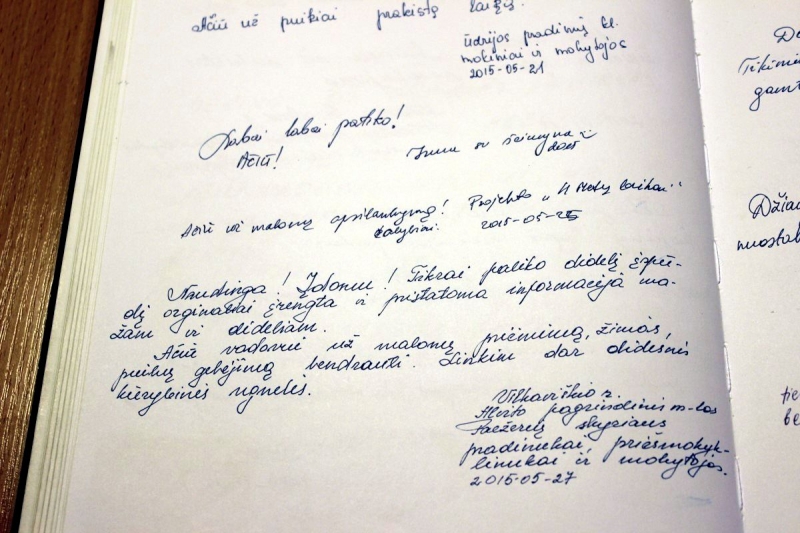 Ačiū už puikiai praleistą laiką.
Ūdrijos pradinių kl.
mokiniai ir mokytojos
2015-05-21
Labai labai patiko!
Ačiū!
Irma su šeimyna
2015
Ačiū už malonų apsilankymą! Projekto „4 Metų laikai"
dalyviai. 2015-05-25
Naudinga! Įdomu! Tikrai paliko didelį įspū-
dį orginaliai įrengta ir pristatoma informacija ma-
žam ir dideliam.
Ačiū vadovei už malonų priėmimą, žinias,
puikų gebėjimą bendrauti. Linkim dar didesnės
kūrybinės ugnelės.
Vilkaviškio r.
Alvito pagrindinės m-los
Paežerių skyriaus
pradinukai, priešmokyk-
linukai ir mokytojos.
2015-05-27
Tikimės
gamt
Džiau
nuostab
be